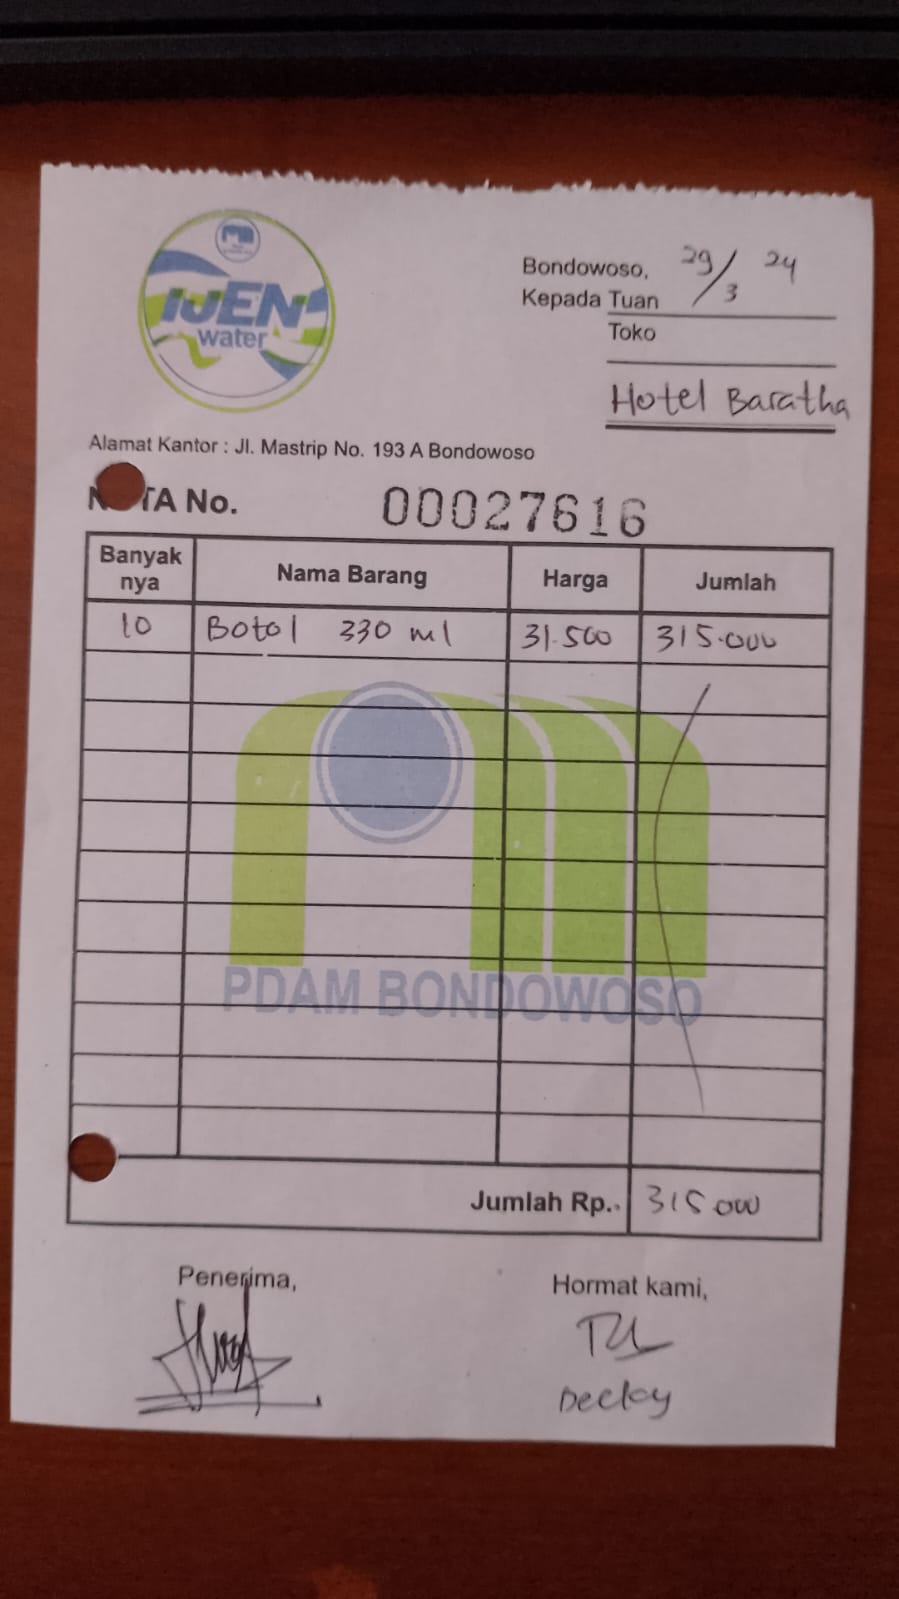 IJEN
water
Bondowoso, 29/3 24
Kepada Tuan
Toko
Hotel Baratha
Alamat Kantor : Jl. Mastrip No. 193 A Bondowoso
NOTA No. 00027616
Banyak nya Nama Barang Harga Jumlah
10 Botol 330 ml 31.500 315.000
PDAM BONDOWOSO
Jumlah Rp. 315 000
Penerima, Hormat kami,